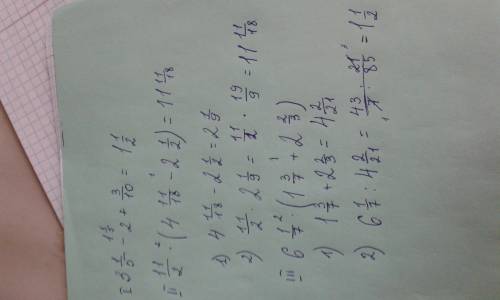 I 3 1/5 - 2 + 3/10 = 1 1/2
II 11/2 · (4 11/18 - 2 1/2) = 11 11/18
1) 4 11/18 - 2 1/2 = 2 1/9
2) 11/2 · 2 1/9 = 11/2 · 19/9 = 11 11/18
III 6 1/7 : (1 3/7 + 2 2/3)
1) 1 3/7 + 2 2/3 = 4 2/21
2) 6 1/7 : 4 2/21 = 43/7 · 21/85 = 1 1/2